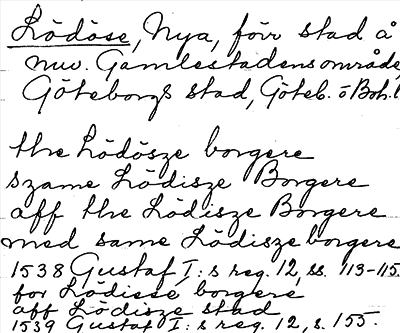 Lödöse, Nya, förr stad å
nuv. Gamlestadens område,
Göteborgs stad, Göteb. o Boh. l
the Lödösze borgere
szame Lödisze Borgere
aff the Lödisze Borgere
med same Lödisze borgere
1538 Gustaf I:s reg. 12, ss. 113-115.
for Lödiese borgere
aff Lödisze stad
1539 Gustaf I:s reg. 12, s. 155.